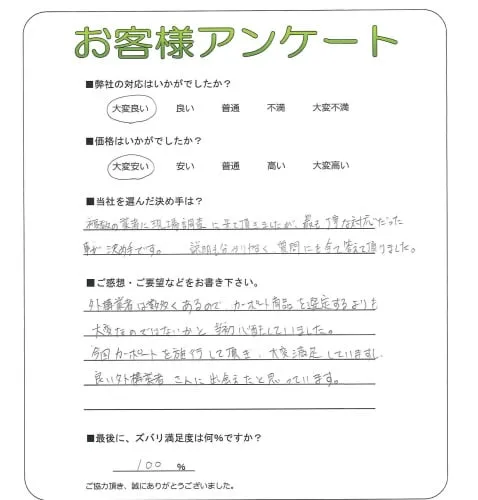 お客様アンケート
■弊社の対応はいかがでしたか？
大変良い 良い 普通 不満 大変不満
■価格はいかがでしたか？
大変安い 安い 普通 高い 大変高い
■当社を選んだ決め手は？
複数の業者に現場調査に来て頂きましたが、最も丁寧な対応だった
事が決め手です。 説明も分かり易く質問にも全て答えて頂けました。
■ご感想・ご要望などをお書き下さい。
外構業者は数多くあるので、カーポート商品を選定するよりも
大変なのではないかと当初心配していました。
今回カーポートを施行して頂き、大変満足していますし
良い外構業者さんに出会えたと思っています。
■最後に、ズバリ満足度は何%ですか？
100 %
ご協力頂き、誠にありがとうございました。